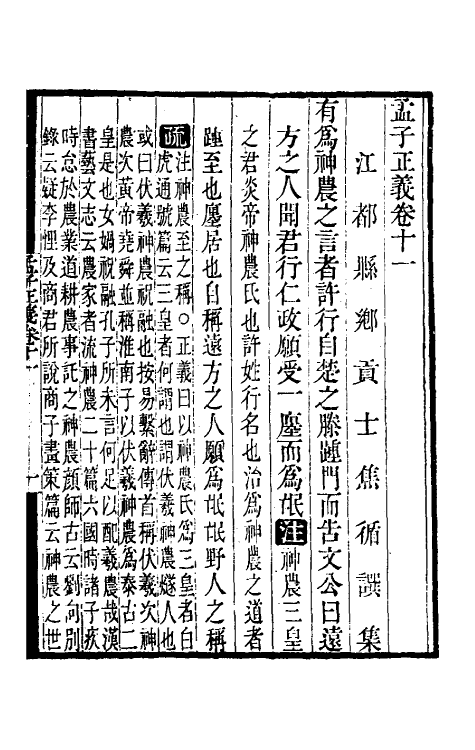 孟子正義卷十一
江都縣鄉貢士焦循譔集
有爲神農之言者許行自楚之滕踵門而告文公曰遠
方之人聞君行仁政願受一廛而爲氓注神農三皇
之君炎帝神農氏也許姓行名也治爲神農之道者
踵至也廛居也自稱遠方之人願爲氓氓野人之稱
疏注神農至之稱○正義曰以神農氏爲三皇者白
虎通號篇云三皇者何謂也謂伏羲神農燧人也
或曰伏羲神農祝融也按易繫辭傳首稱伏羲次神
農次黃帝堯舜並稱淮南子以伏羲神農爲泰古二
皇是也女媧祝融孔子所未言何足以配羲農哉漢
書藝文志云農家者流神農二十篇六國時諸子疾
時怠於農業道耕農事託之神農顏師古云劉向別
錄云疑李悝及商君所說商子畫策篇云神農之世
孟子正義卷十一
一